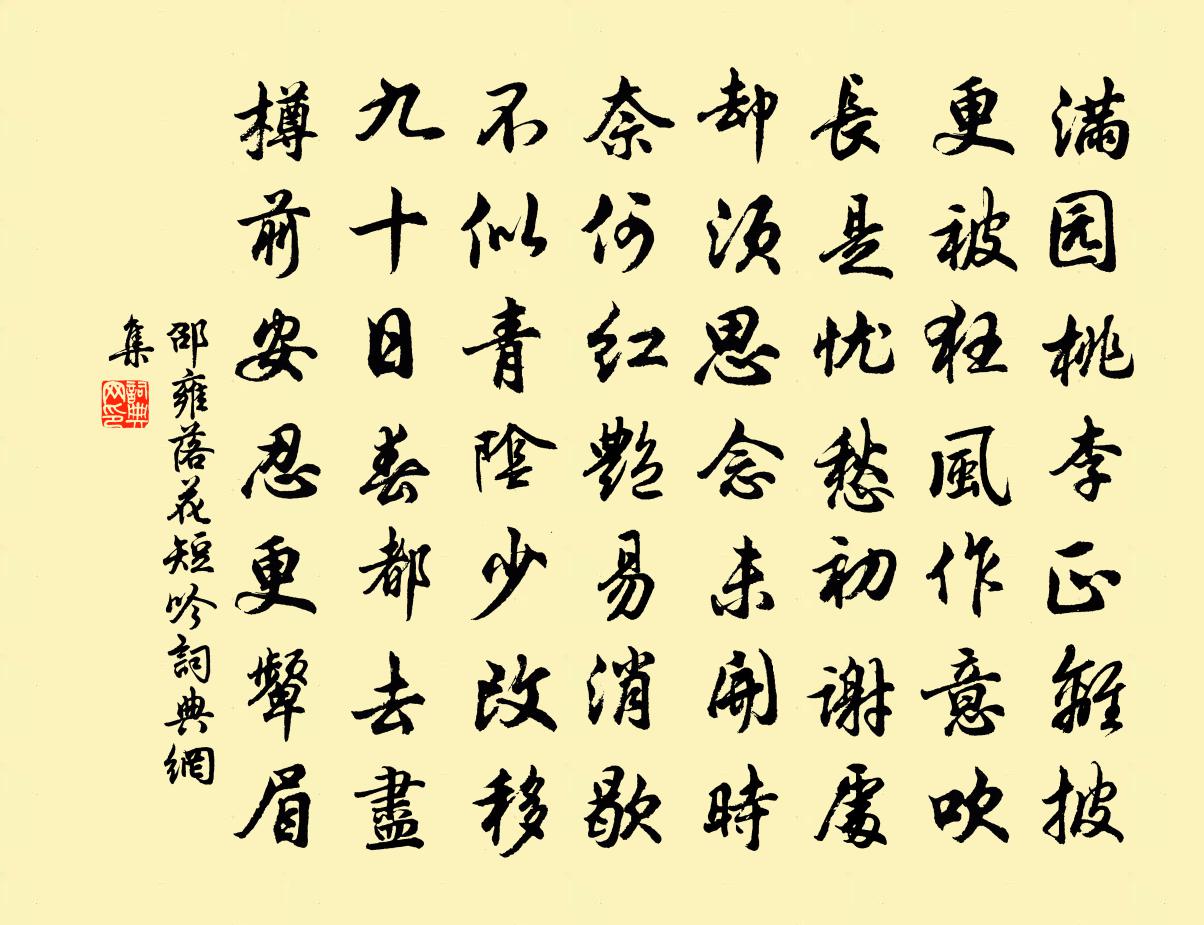 滿园桃李正離披
更被狂風作意吹
長是忧愁初谢處
却须思念未開時
奈何红艷易消歇
不似青陰少改移
九十日春都去盡
樽前安忍更顰眉
邵雍落花短吟詞典網
集
詞典
网印